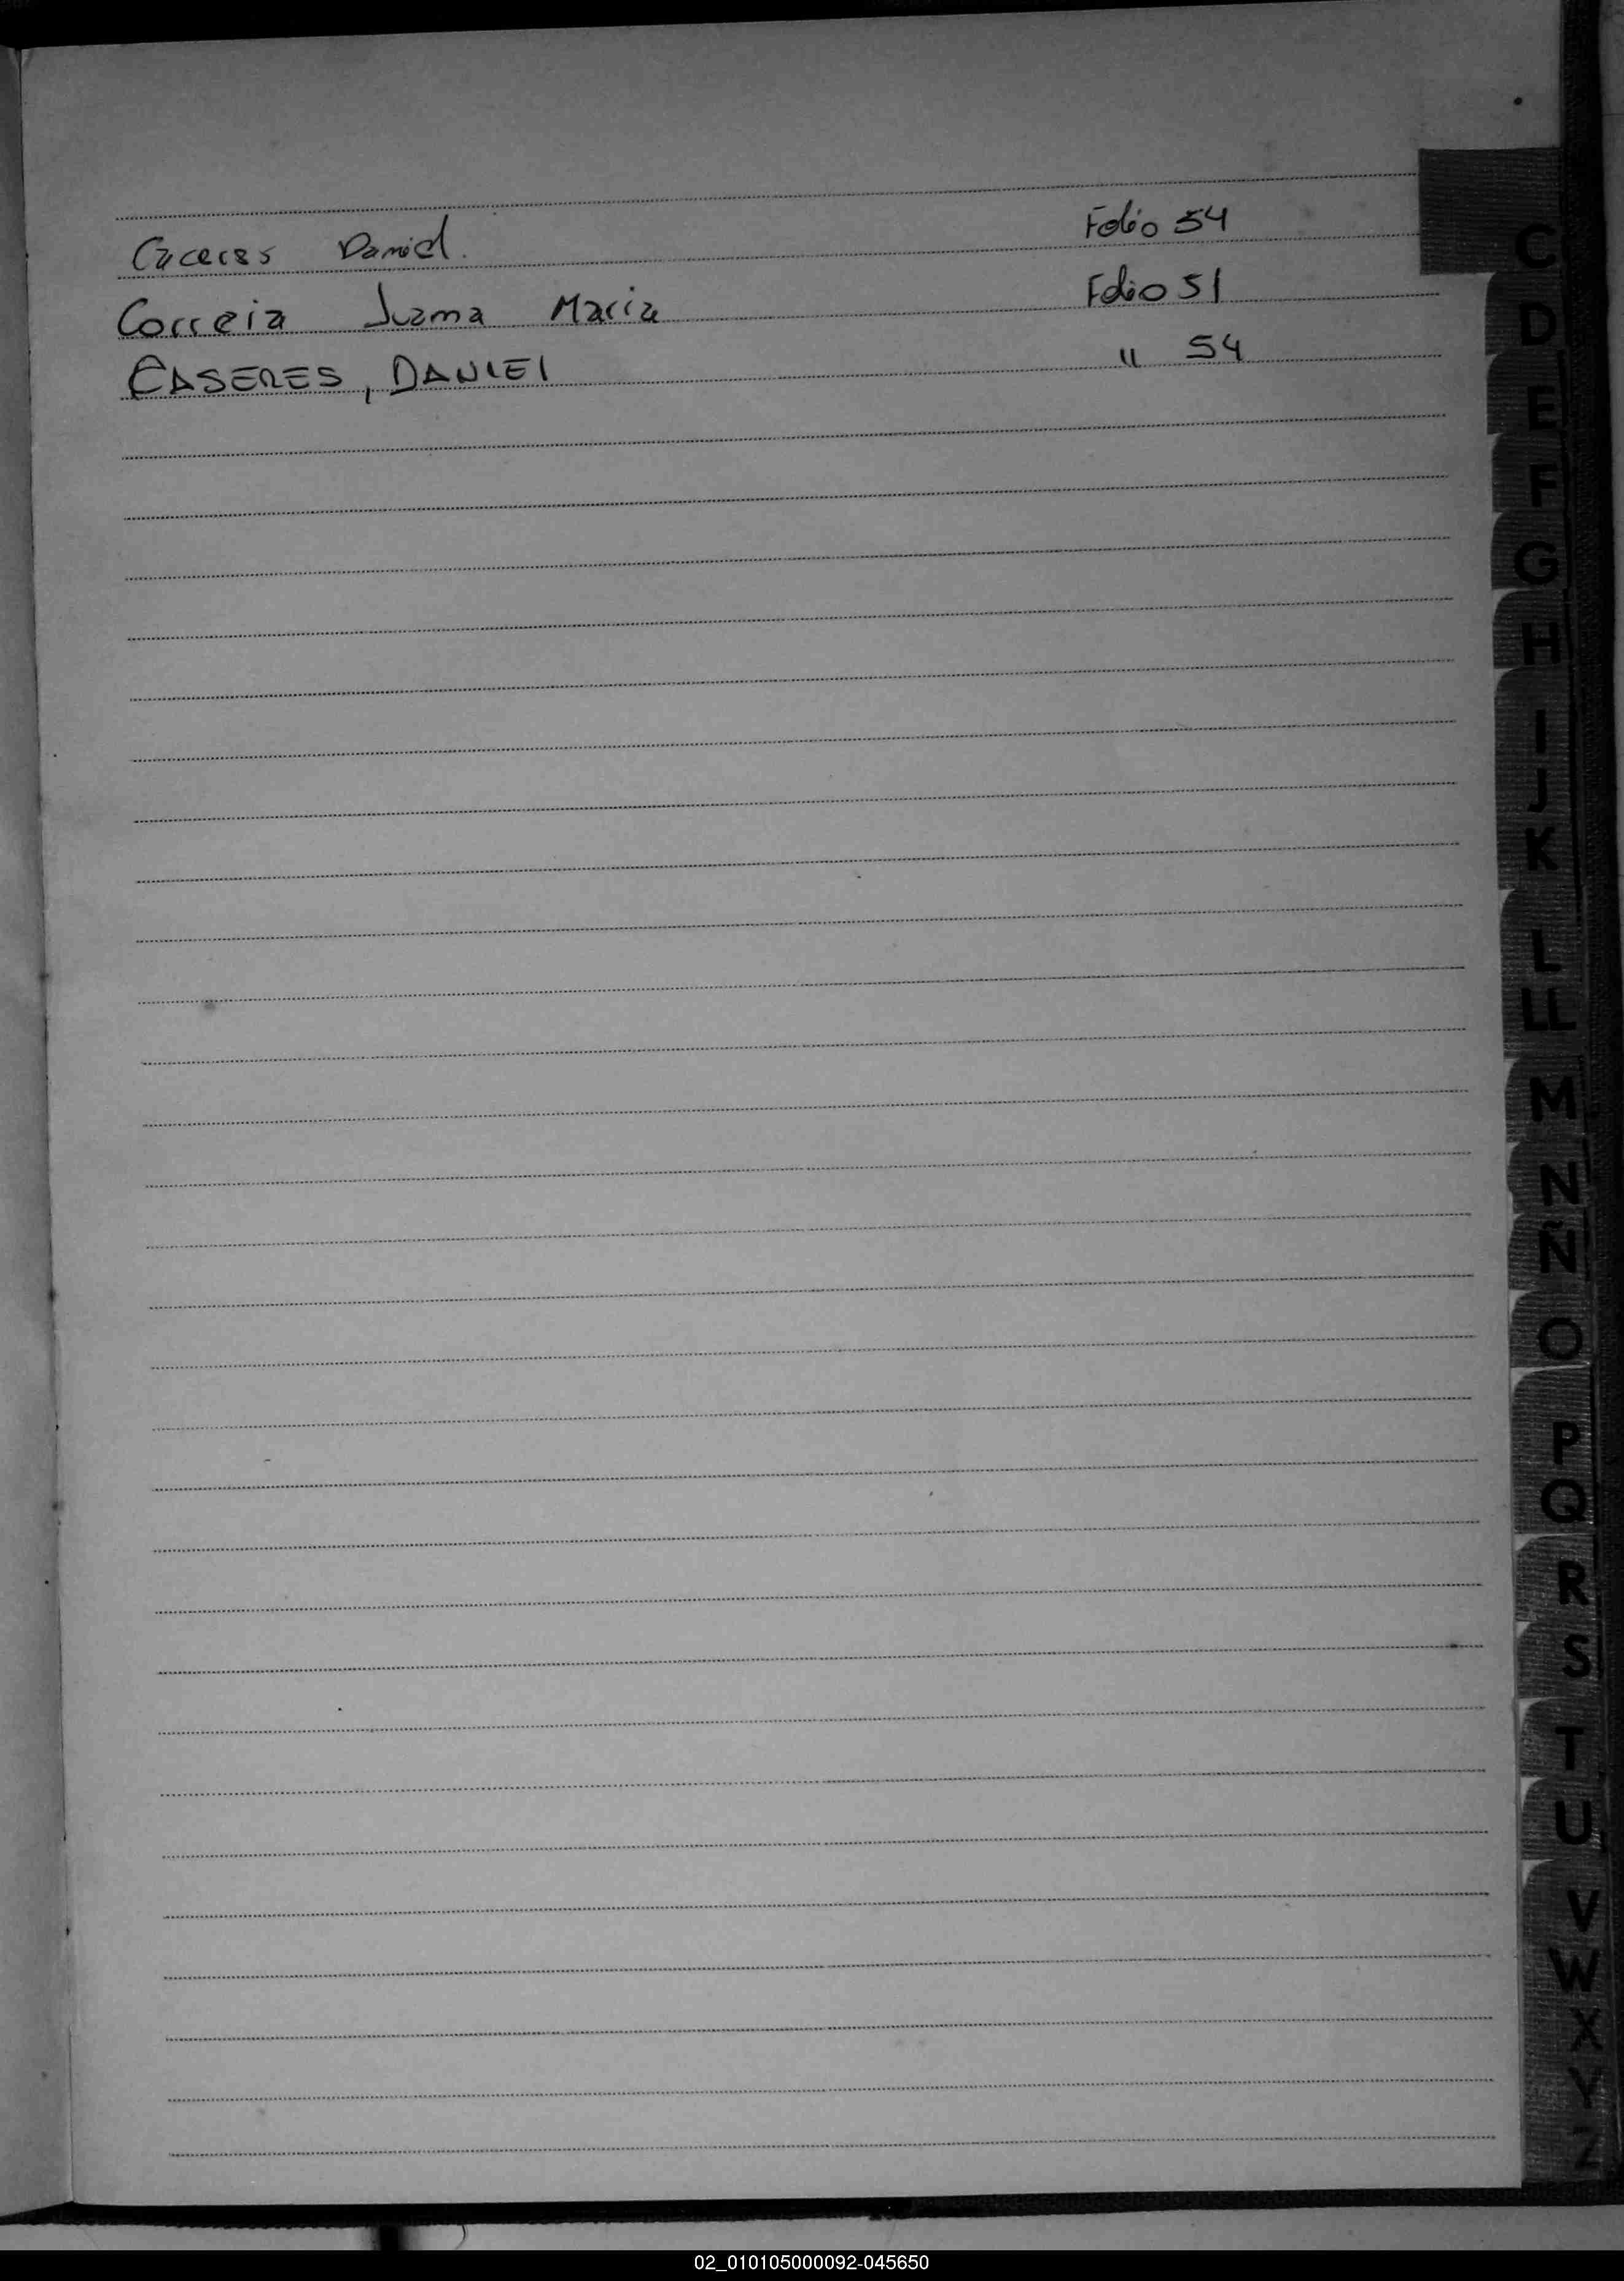 Caceres Daniel. Folio 54
Correia Juana Maria Folio 51
CASERES, DANIEL " 54
C
D
E
F
G
H
I
J
K
L
LL
M
N
Ñ
O
P
Q
R
S
T
U
V
W
X
Y
Z
02_010105000092-045650